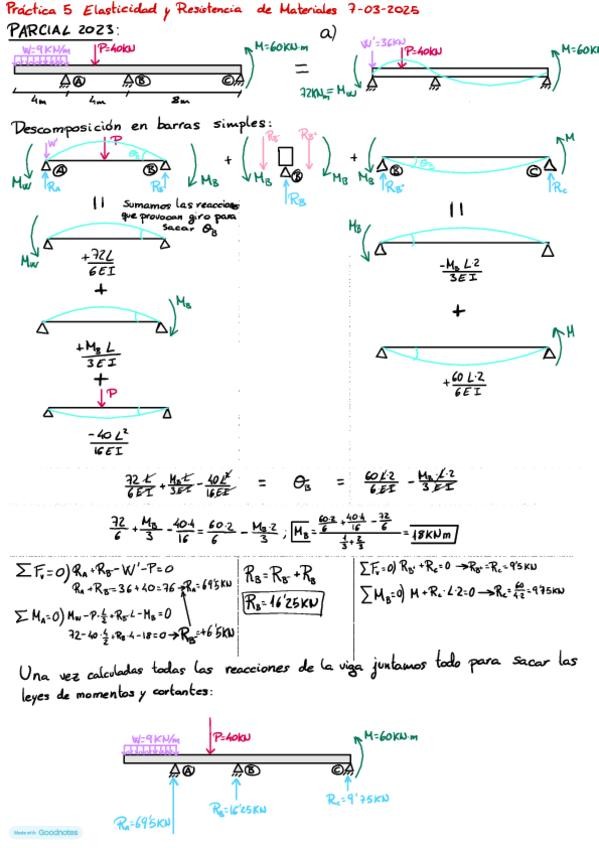 Práctica 5 Elasticidad y Resistencia de Materiales 7-03-2025
PARCIAL 2023:
a)
W=9KN/m
P=40KN
M=60KN·m
A
B
C
4m
4m
8m
=
W'=36KN
P=40KN
M=60KN
72KNm=Mw
Descomposición en barras simples:
W'
P
A
B
Mw
RA
RB'
MB
+
RB'
RB''
MB
B
MB
RB
+
MB
B
θB
C
M
RB''
Rc
Sumamos las reacciones
que provocan giro para
sacar θB
Mw
+72L/6EI
+
MB
+MB L/3EI
+
P
-40L²/16EI
MB
-MB L·2/3EI
+
M
+60L·2/6EI
72·L/6EI + MB·L/3EI - 40L²/16EI = θB = 60L·2/6EI - MB·L·2/3EI
72/6 + MB/3 - 40·4/16 = 60·2/6 - MB·2/3 ; MB = (60·2/6 + 40·4/16 - 72/6)/(1/3 + 2/3) = 18KNm
ΣFv=0) RA+RB'-W'-P=0
RA+RB'=36+40=76→RA=69'5KN
ΣMA=0) Mw-P·L/2+RB'·L-MB=0
72-40·4/2+RB'·4-18=0→RB'=+6'5KN
RB=RB'+RB''
RB=16'25KN
ΣFv=0) RB''+Rc=0→RB''=-Rc=9'75KN
Una vez calculadas todas las reacciones de la viga juntamos todo para sacar las
leyes de momentos y cortantes:
W=9KN/m
P=40KN
M=60KN·m
A
B
C
RA=69'5KN
RB=16'25KN
Rc=9'75KN
Made with Goodnotes